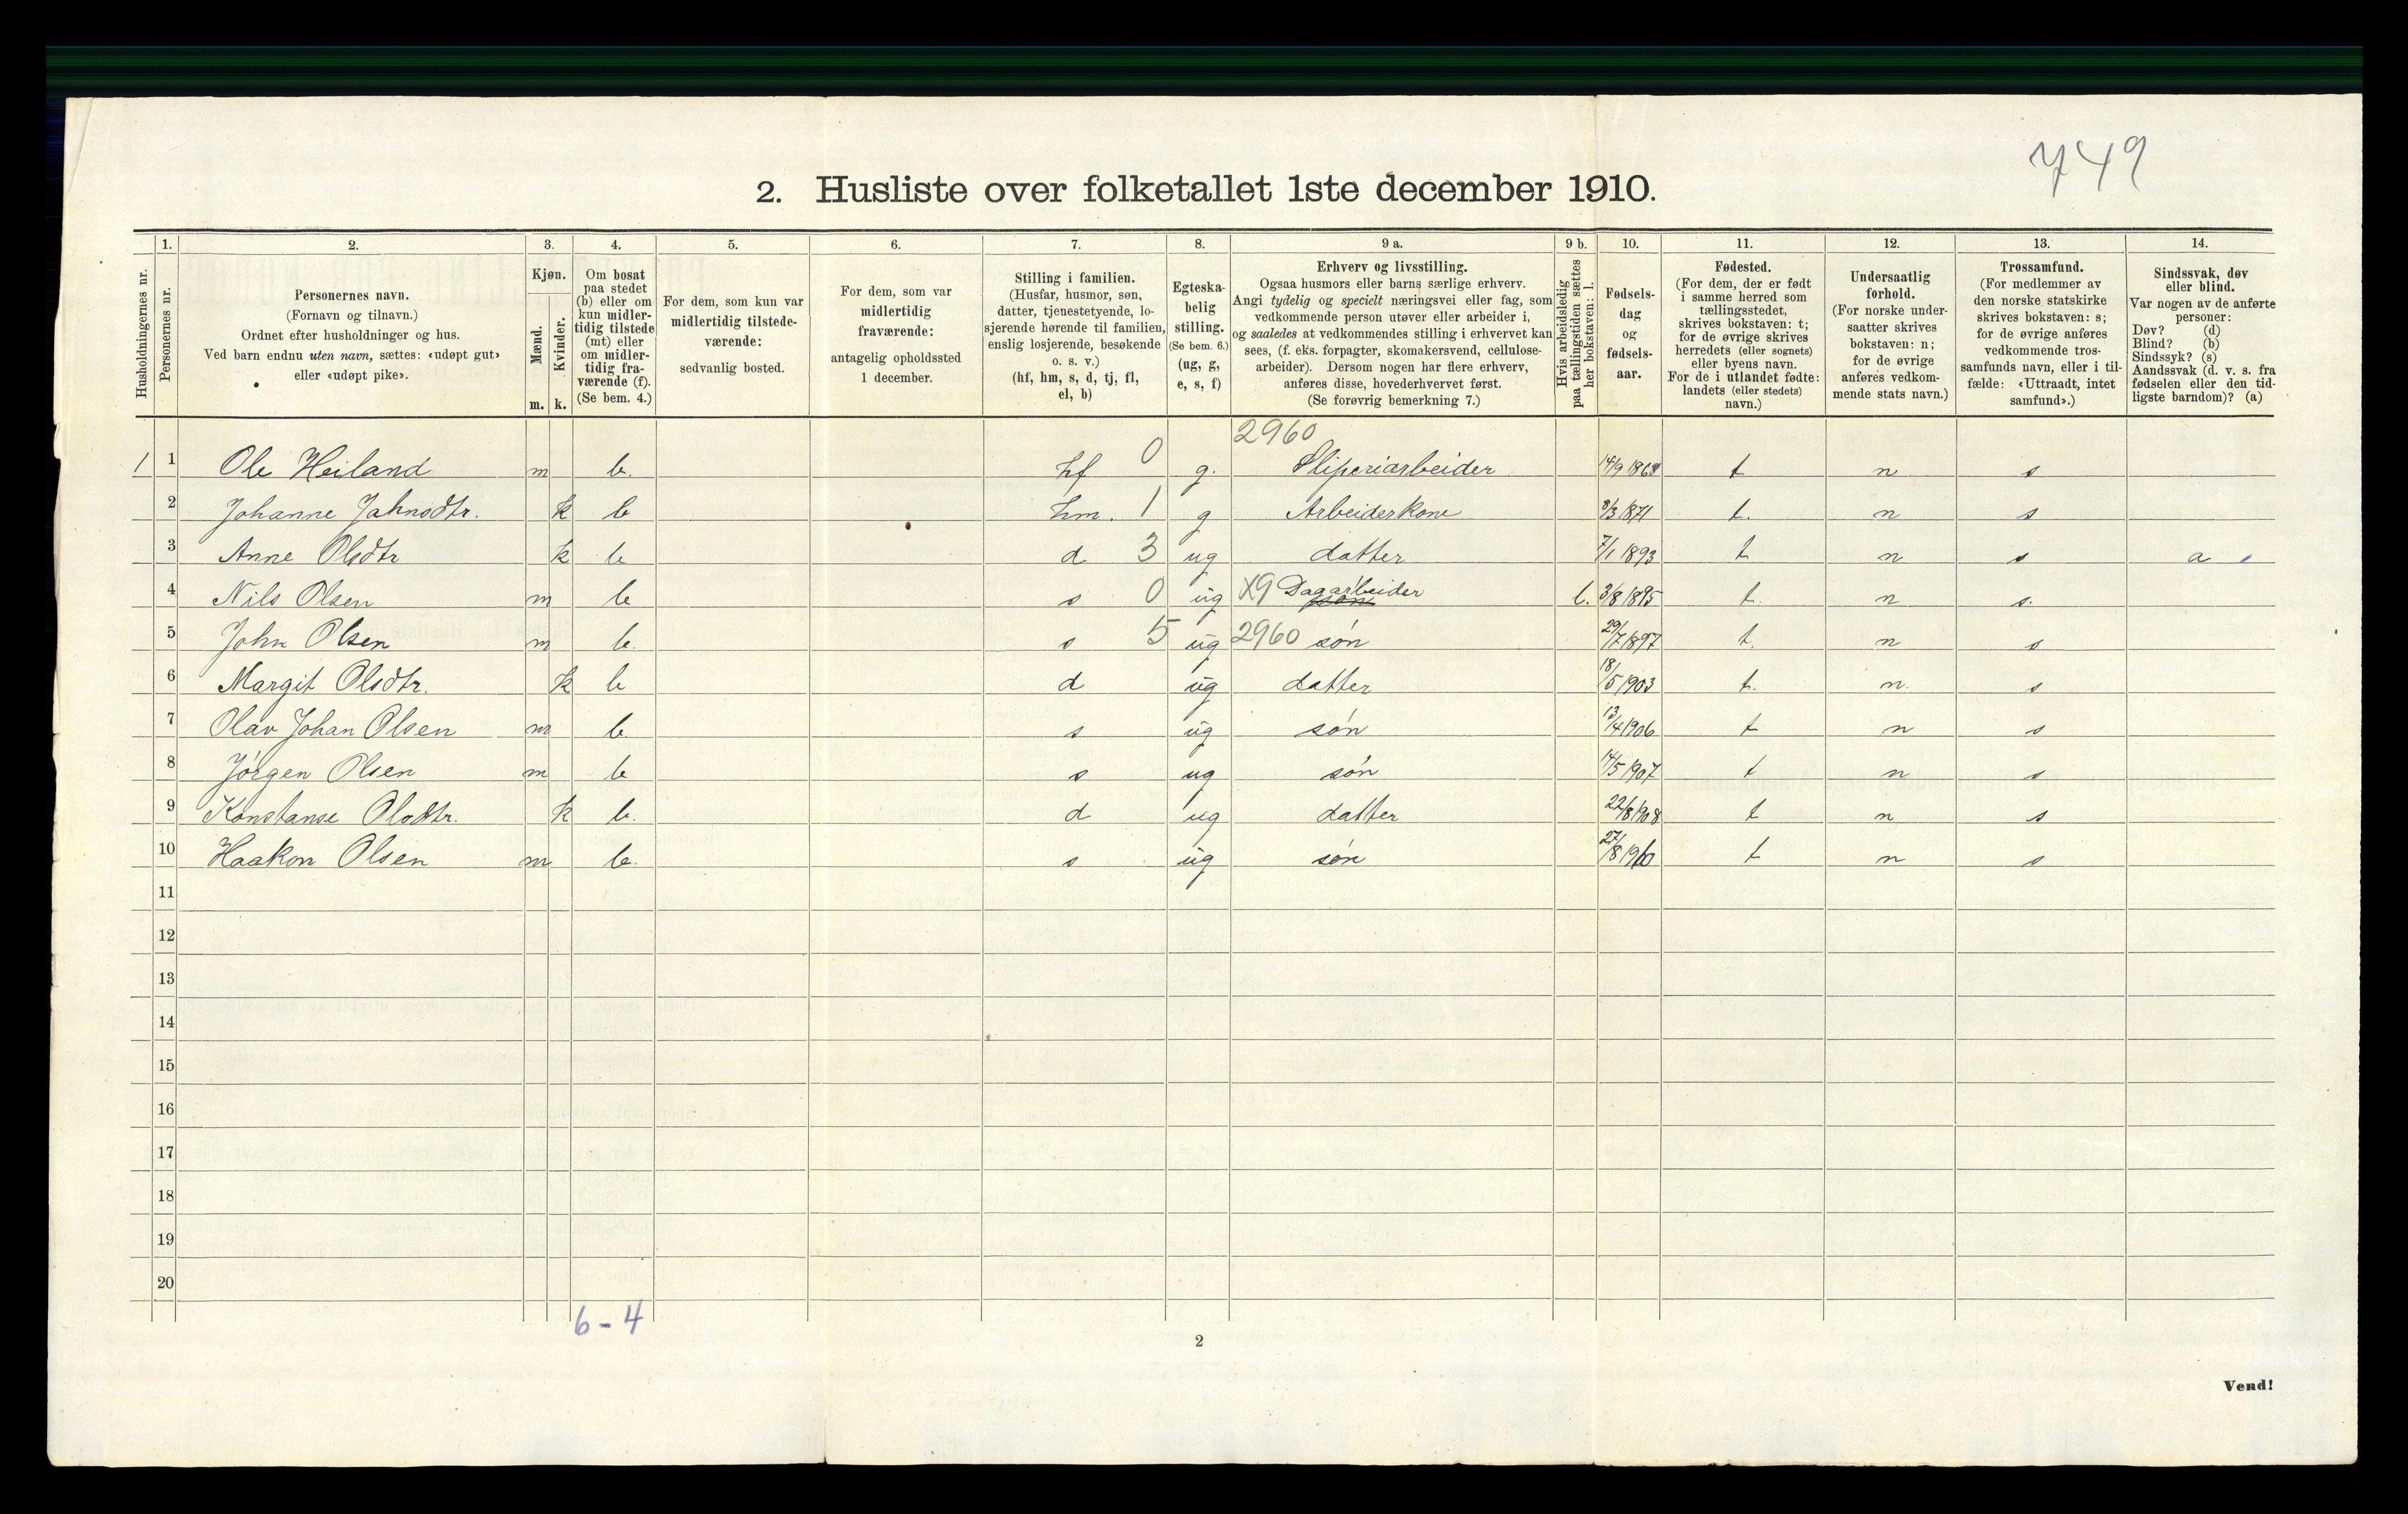 749
2. Husliste over folketallet 1ste december 1910.
1. 2. 3. 4. 5. 6. 7. 8. 9 a. 9 b. 10. 11. 12. 13. 14.
Husholdningernes nr.
Personernes nr.
Personernes navn.
(Fornavn og tilnavn.)
Ordnet efter husholdninger og hus.
Ved barn endnu uten navn, sættes: «udøpt gut»
eller «udøpt pike».
Kjøn.
Mænd.
Kvinder.
m. k.
Om bosat
paa stedet
(b) eller om
kun midler-
tidig tilstede
(mt) eller
om midler-
tidig fra-
værende (f).
(Se bem. 4.)
For dem, som kun var
midlertidig tilstede-
værende:
sedvanlig bosted.
For dem, som var
midlertidig
fraværende:
antagelig opholdssted
1 december.
Stilling i familien.
(Husfar, husmor, søn,
datter, tjenestetyende, lo-
sjerende hørende til familien,
enslig losjerende, besøkende
o. s. v.)
(hf, hm, s, d, tj, fl,
el, b)
Egteska-
belig
stilling.
(Se bem. 6.)
(ug, g,
e, s, f)
Erhverv og livsstilling.
Ogsaa husmors eller barns særlige erhverv.
Angi tydelig og specielt næringsvei eller fag, som
vedkommende person utøver eller arbeider i,
og saaledes at vedkommendes stilling i erhvervet kan
sees, (f. eks. forpagter, skomakersvend, cellulose-
arbeider). Dersom nogen har flere erhverv,
anføres disse, hovederhvervet først.
(Se forøvrig bemerkning 7.)
Hvis arbeidsledig
paa tællingstiden sættes
her bokstaven: l.
Fødsels-
dag
og
fødsels-
aar.
Fødested.
(For dem, der er født
i samme herred som
tællingsstedet,
skrives bokstaven: t;
for de øvrige skrives
herredets (eller sognets)
eller byens navn.
For de i utlandet fødte:
landets (eller stedets)
navn.)
Undersaatlig
forhold.
(For norske under-
saatter skrives
bokstaven: n;
for de øvrige
anføres vedkom-
mende stats navn.)
Trossamfund.
(For medlemmer av
den norske statskirke
skrives bokstaven: s;
for de øvrige anføres
vedkommende tros-
samfunds navn, eller i til-
fælde: «Uttraadt, intet
samfund».)
Sindssvak, døv
eller blind.
Var nogen av de anførte
personer:
Døv? (d)
Blind? (b)
Sindssyk? (s)
Aandssvak (d. v. s. fra
fødselen eller den tid-
ligste barndom)? (a)
2960
1 1 Ole Heiland m b. hf 0 g. Sliperiarbeider t n s
2 Johanne Jahnsdtr. k b hm. 1 g Arbeiderkone 8/3 1871 t. n s
3 Anne Olsdtr k b d 3 ug datter 7/1 1893 t n s a
4 Nils Olsen m b s 0 ug X9 Dagarbeider søn l. 3/8 1895 t. n s.
5 John Olsen m b. s 5 ug 2960 søn 29/7 1897 t. n s
6 Margit Olsdtr. k b d ug datter 18/5 1903 t. n. s
7 Olav Johan Olsen m b s ug søn 13/4 1906 t n s
8 Jørgen Olsen m b s ug søn 14/5 1907 t n s
9 Konstanse Olsdtr. k b. d ug datter 22/8 1908 t n s
10 Haakon Olsen m b. s ug søn 27/8 1910 t n s
11
12
13
14
15
16
17
18
19
20
6 - 4
2
Vend!